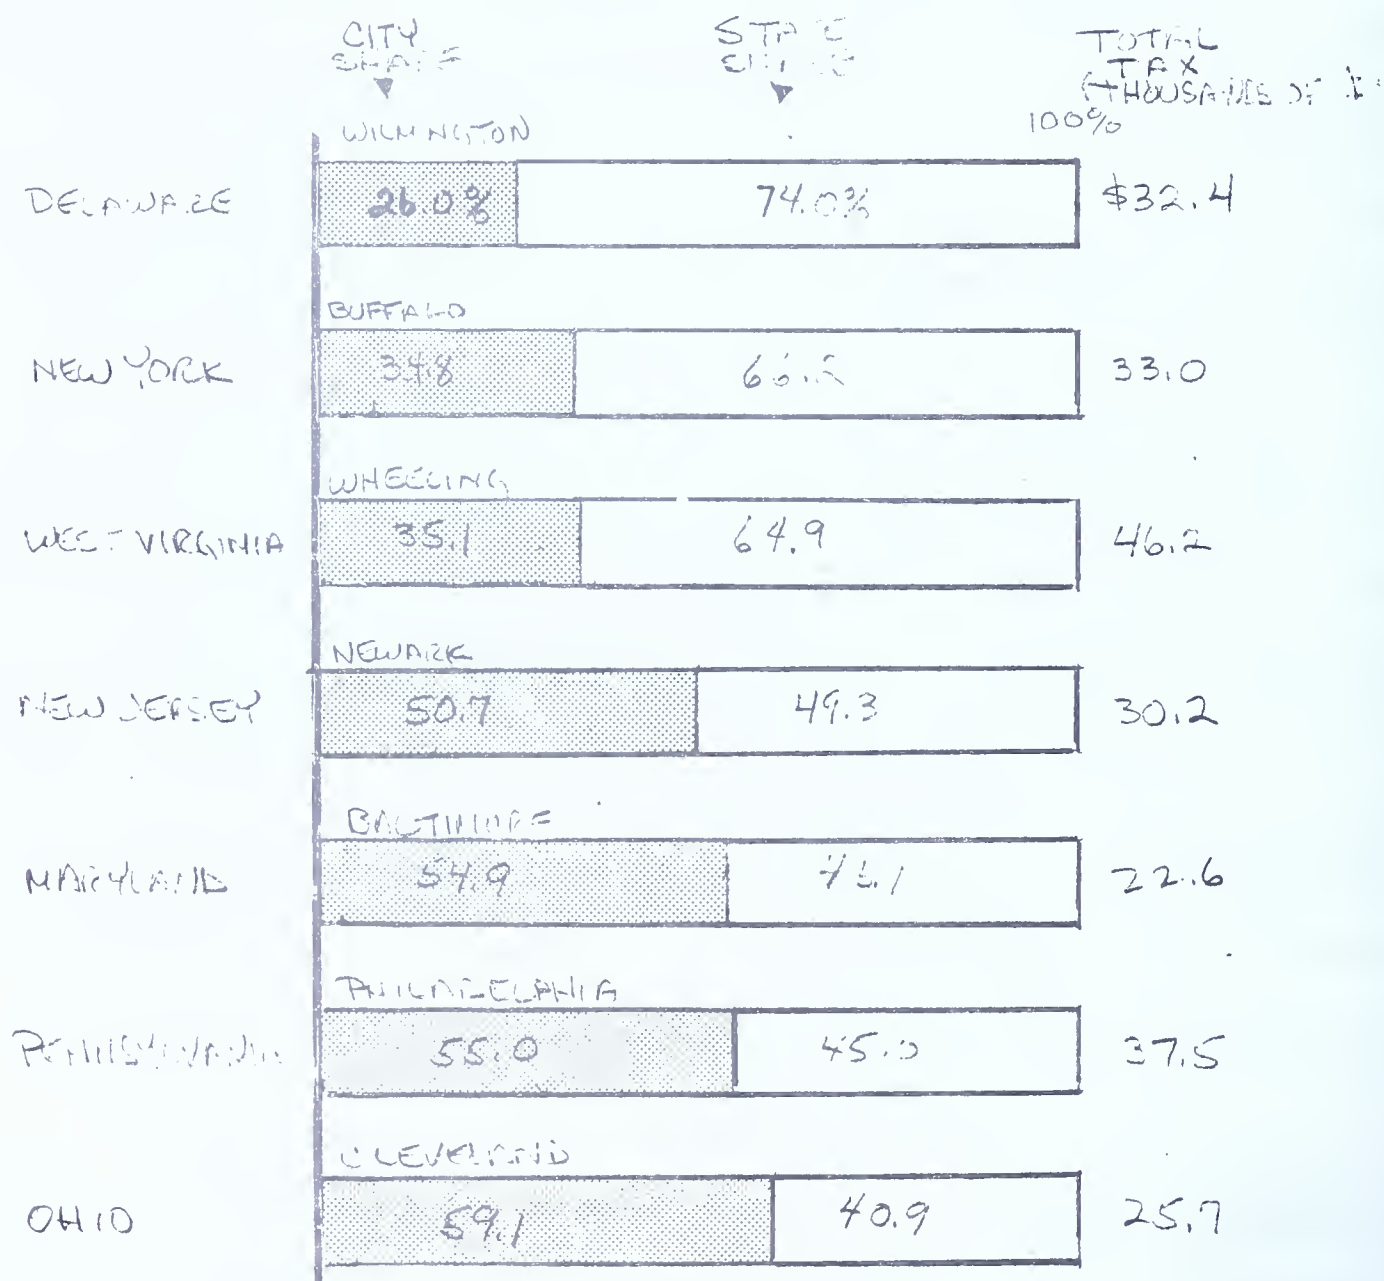 CITY
SHARE
STATE
SHARE
TOTAL
TAX
(THOUSANDS OF $)
100%
WILMINGTON
DELAWARE 26.0% 74.0% $32.4
BUFFALO
NEW YORK 34.8 33.0
WHEELING
WEST VIRGINIA 35.1 64.9 46.2
NEWARK
NEW JERSEY 50.7 49.3 30.2
BALTIMORE
MARYLAND 54.9 22.6
PHILADELPHIA
PENNSYLVANIA 55.0 45.0 37.5
CLEVELAND
OHIO 59.1 40.9 25.7